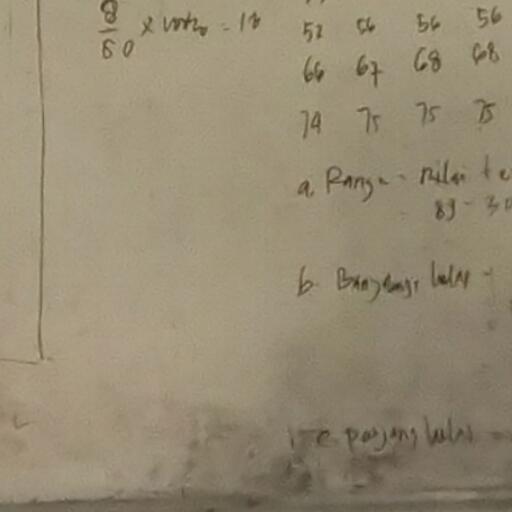 8/60 × 100% = 13
52 56 56 56
66 67 68 68
74 75 75 75
a. Range = nilai te
89 - 30
b. Banyaknya kelas =
c. panjang kelas =